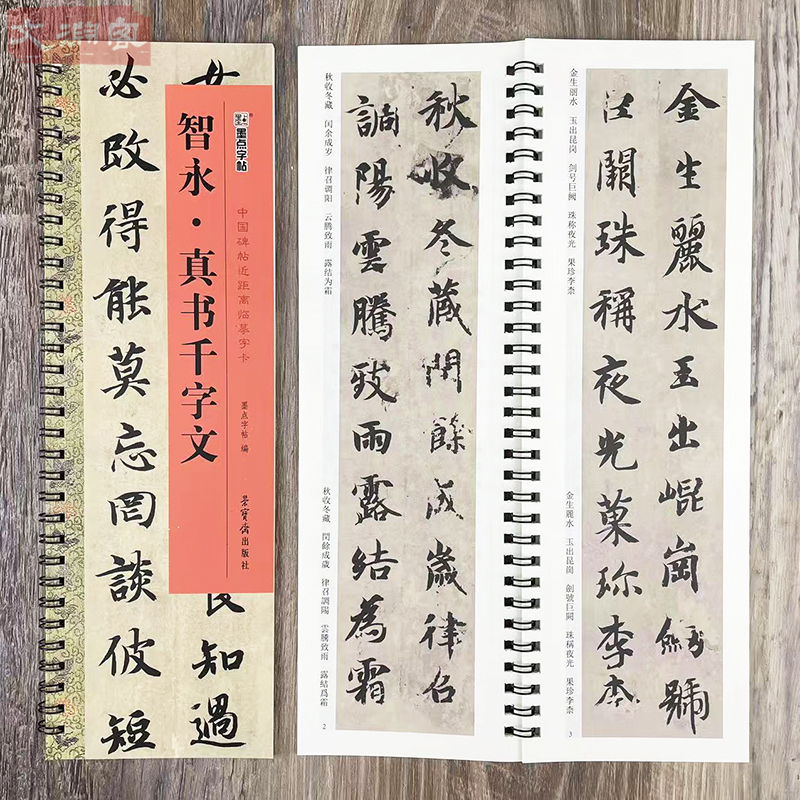 墨点字帖
智永·真书千字文
中国碑帖近距离临摹字卡
墨点字帖 编
榮寶齋出版社
知過
必改得能莫忘罔談彼短
金生麗水玉出崐崗劍號
巨闕珠稱夜光菓珍李柰
金生丽水 玉出昆岗 剑号巨阙 珠称夜光 果珍李柰
金生麗水 玉出昆崗 劍號巨闕 珠稱夜光 果珍李柰
3
秋收冬藏閏餘成歲律召
調陽雲騰致雨露結為霜
秋收冬藏 闰余成岁 律召调阳 云腾致雨 露结为霜
秋收冬藏 閏餘成歲 律召調陽 雲騰致雨 露結爲霜
2